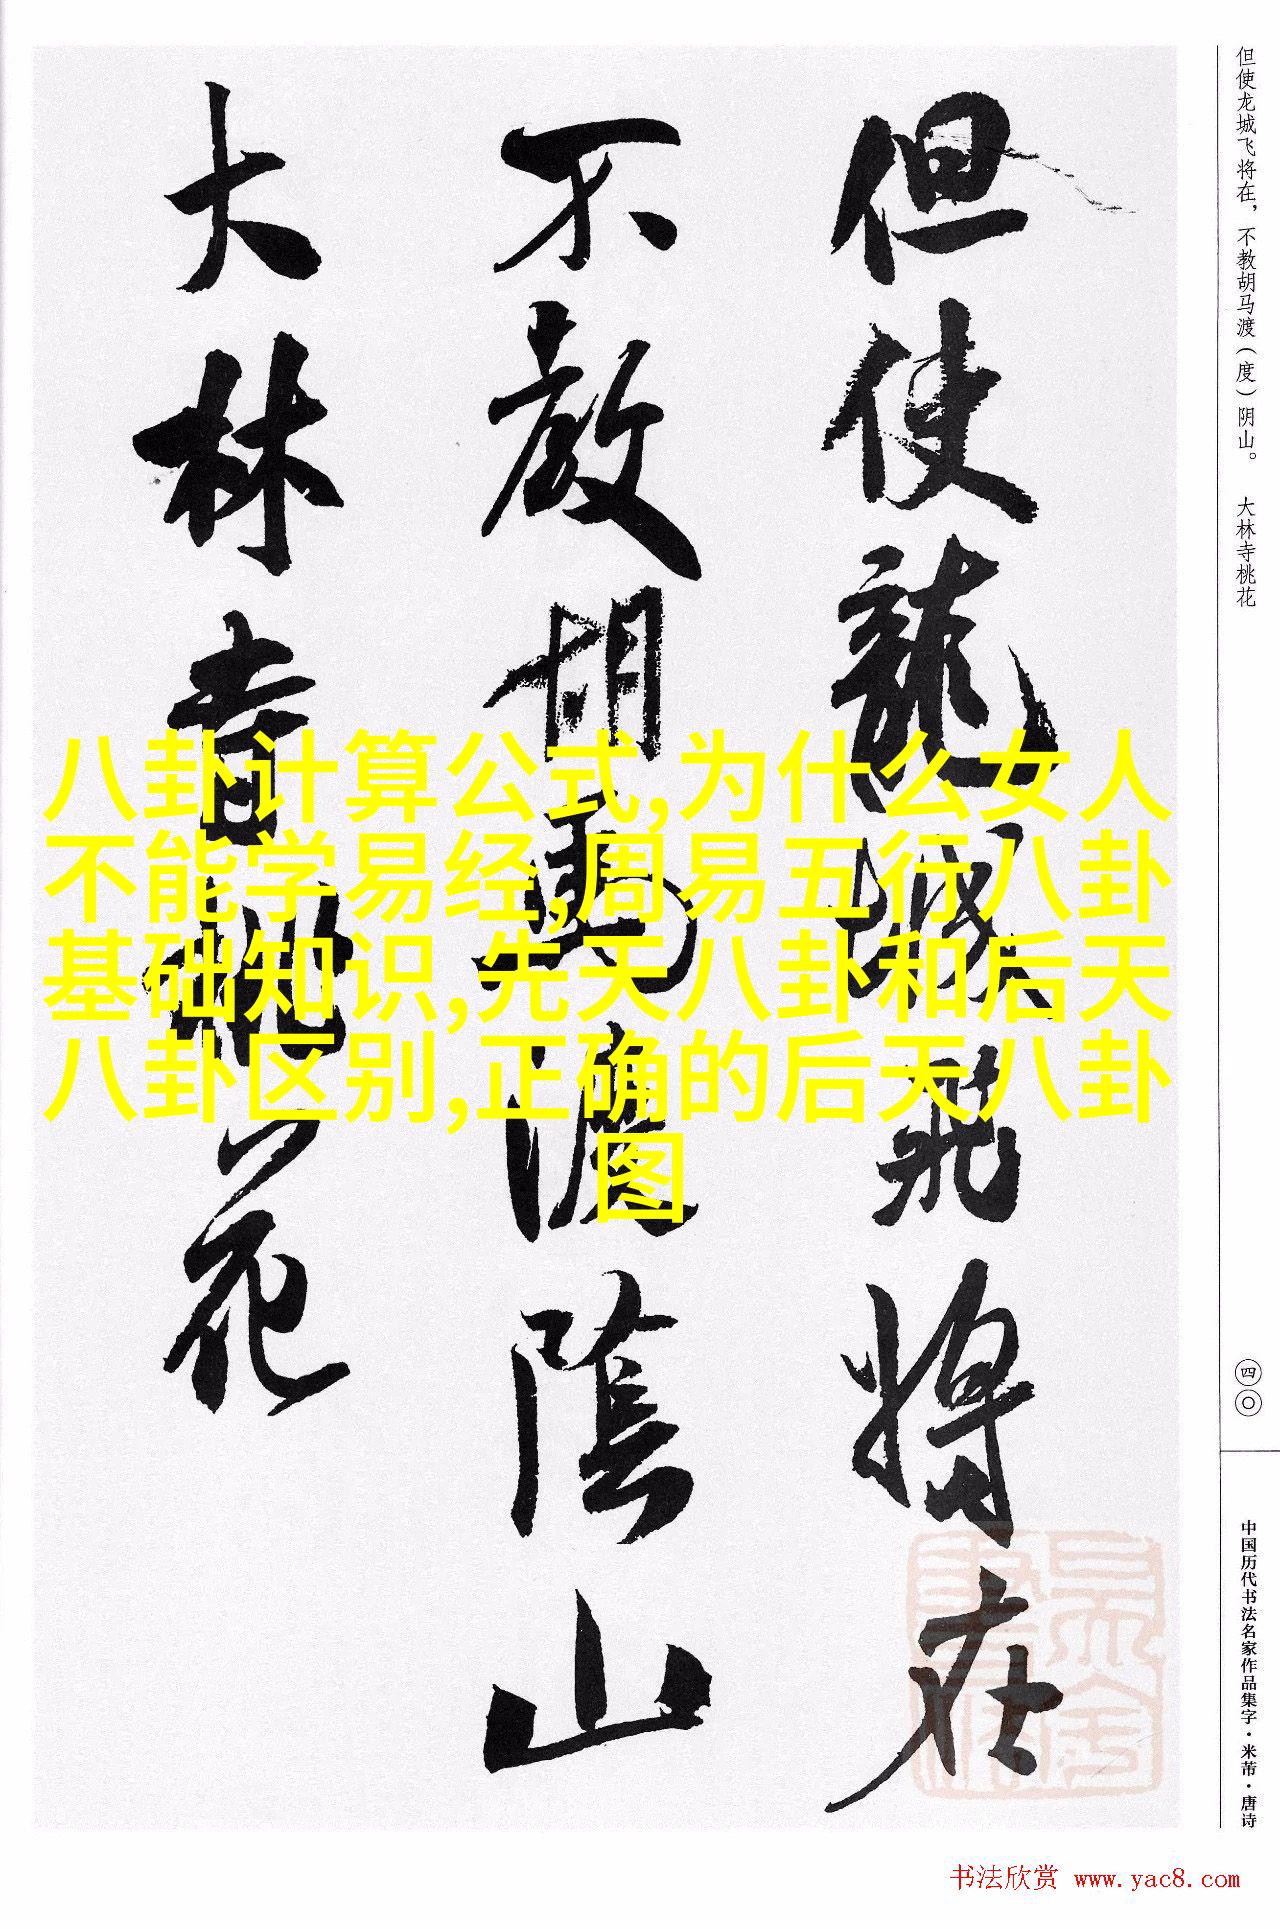 但使龙城飞将在，不教胡马渡（度）阴山。 大林寺桃花
但使龍城飛將在
不教胡馬渡陰山
大林寺桃花
八卦计算公式,为什么女人
不能学易经,周易五行八卦
基础知识,先天八卦和后天
八卦区别,正确的后天八卦
图
四〇
中国历代书法名家作品集字·米芾·唐诗
书法欣赏 www.yac8.com